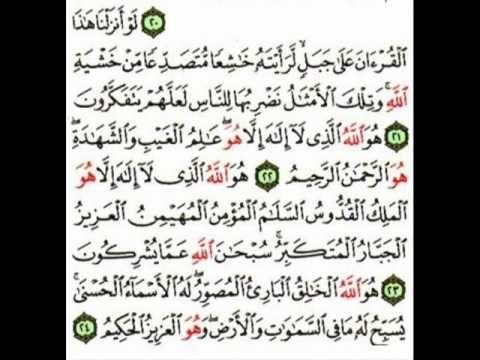 ﴿٢٠﴾ لَوْ أَنزَلْنَا هَٰذَا
ٱلْقُرْءَانَ عَلَىٰ جَبَلٍ لَّرَأَيْتَهُۥ خَٰشِعًا مُّتَصَدِّعًا مِّنْ خَشْيَةِ
ٱللَّهِ ۚ وَتِلْكَ ٱلْأَمْثَٰلُ نَضْرِبُهَا لِلنَّاسِ لَعَلَّهُمْ يَتَفَكَّرُونَ
﴿٢١﴾ هُوَ ٱللَّهُ ٱلَّذِى لَآ إِلَٰهَ إِلَّا هُوَ ۖ عَٰلِمُ ٱلْغَيْبِ وَٱلشَّهَٰدَةِ ۖ
هُوَ ٱلرَّحْمَٰنُ ٱلرَّحِيمُ ﴿٢٢﴾ هُوَ ٱللَّهُ ٱلَّذِى لَآ إِلَٰهَ إِلَّا هُوَ
ٱلْمَلِكُ ٱلْقُدُّوسُ ٱلسَّلَٰمُ ٱلْمُؤْمِنُ ٱلْمُهَيْمِنُ ٱلْعَزِيزُ
ٱلْجَبَّارُ ٱلْمُتَكَبِّرُ ۚ سُبْحَٰنَ ٱللَّهِ عَمَّا يُشْرِكُونَ
﴿٢٣﴾ هُوَ ٱللَّهُ ٱلْخَٰلِقُ ٱلْبَارِئُ ٱلْمُصَوِّرُ ۖ لَهُ ٱلْأَسْمَآءُ ٱلْحُسْنَىٰ ۚ
يُسَبِّحُ لَهُۥ مَا فِى ٱلسَّمَٰوَٰتِ وَٱلْأَرْضِ ۖ وَهُوَ ٱلْعَزِيزُ ٱلْحَكِيمُ ﴿٢٤﴾